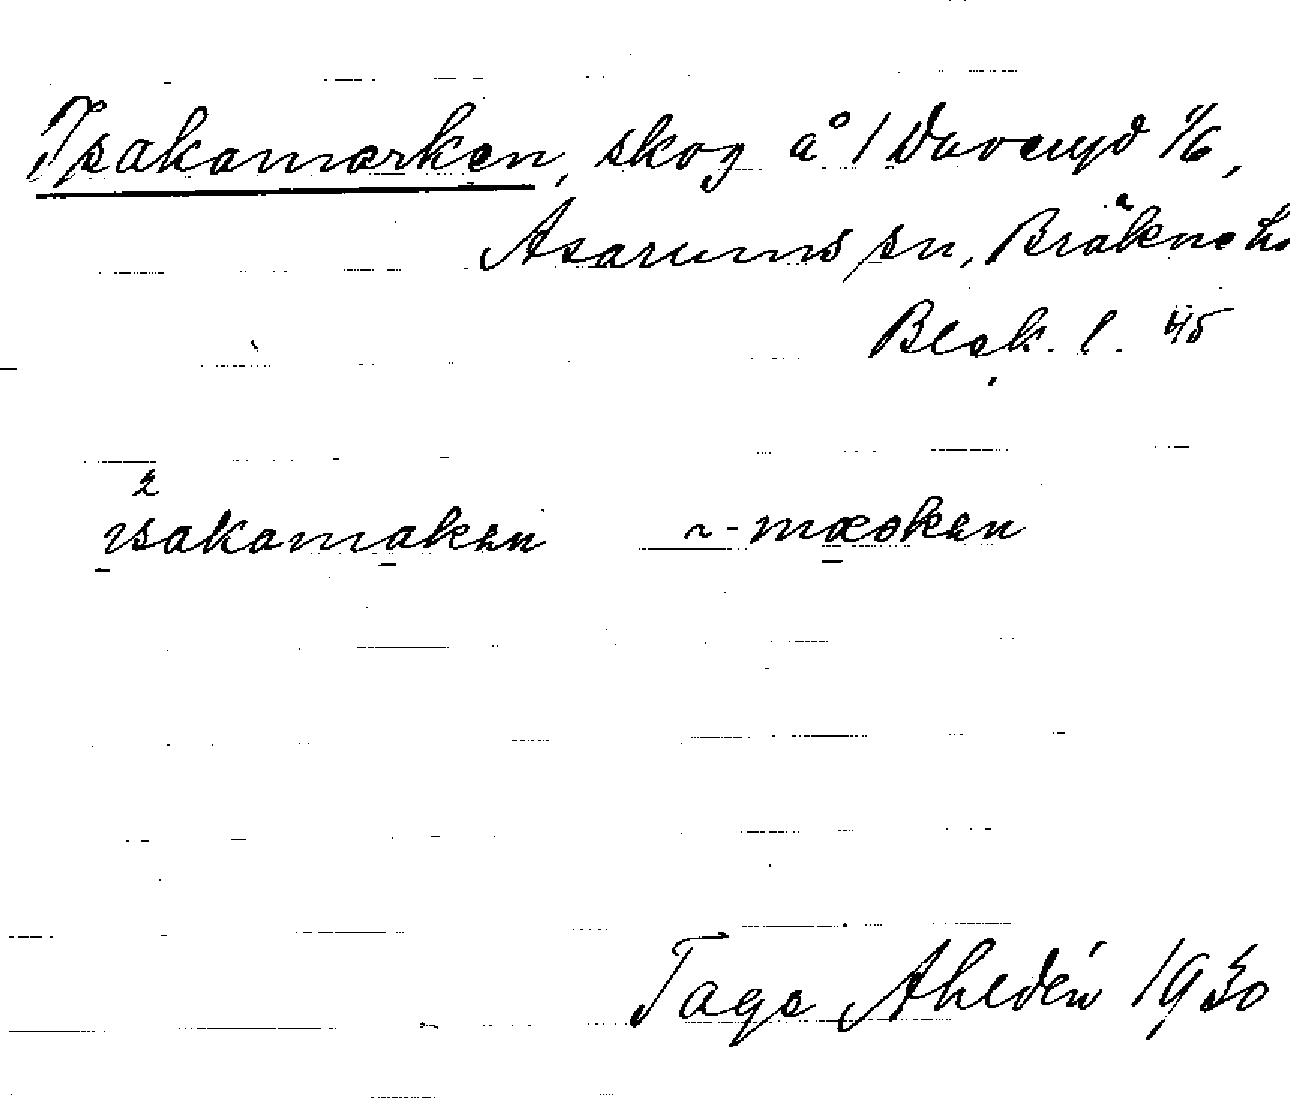 Isakamarken, skog å 1 Duveryd 1/6,
Asarums sn, Bräkne h.
Blek. l. 45
2
isakamakən ~-mæskən
Tage Ahldén 1930